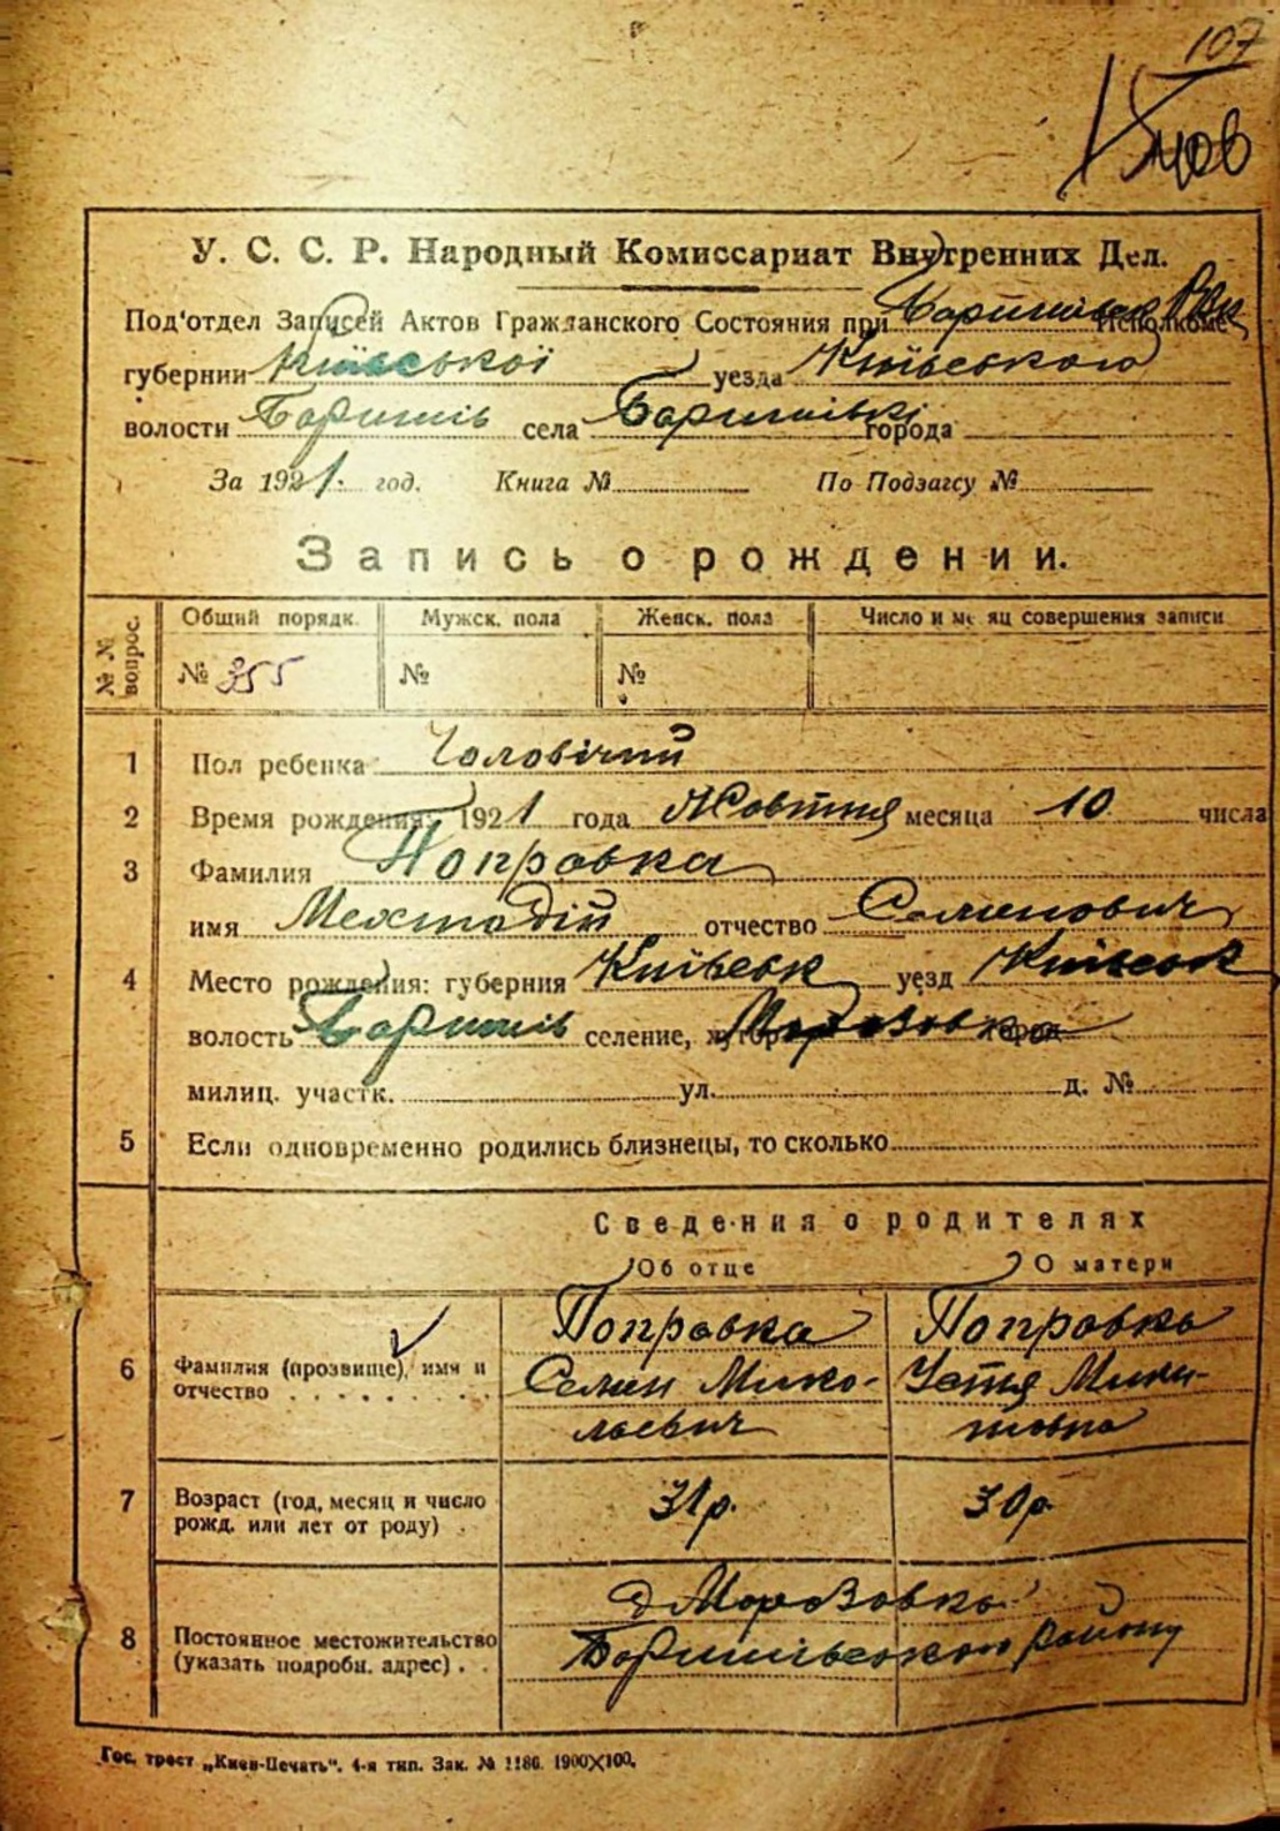 107
У. С. С. Р. Народный Комиссариат Внутренних Дел.
Под'отдел Записей Актов Гражданского Состояния при Исполкоме
губернии Київської уезда Київського
волости Баришів села Баришівкі города
За 1921. год. Книга № По Подзагсу №
Запись о рождении.
№ № вопрос. Общий порядк. Мужск. пола Женск. пола Число и месяц совершения записи
№ 355 № №
1 Пол ребенка Чоловічий
2 Время рождения: 1921 года Жовтня месяца 10 числа
3 Фамилия Поправка
имя отчество Семенович
4 Место рождения: губерния Київськ уезд Київськ
волость Баришів селение, хутор Морозовка город
милиц. участк. ул. д. №
5 Если одновременно родились близнецы, то сколько
Сведения о родителях
Об отце О матери
6 Фамилия (прозвище), имя и отчество Поправка Семен Мико-лаевич Поправка Устя
7 Возраст (год, месяц и число рожд. или лет от роду) 31 р. 30 р.
8 Постоянное местожительство (указать подробн. адрес) Морозовка Баришівського району
Гос. трест „Киев-Печать“. 4-я тип. Зак. № 1186. 1900X100.